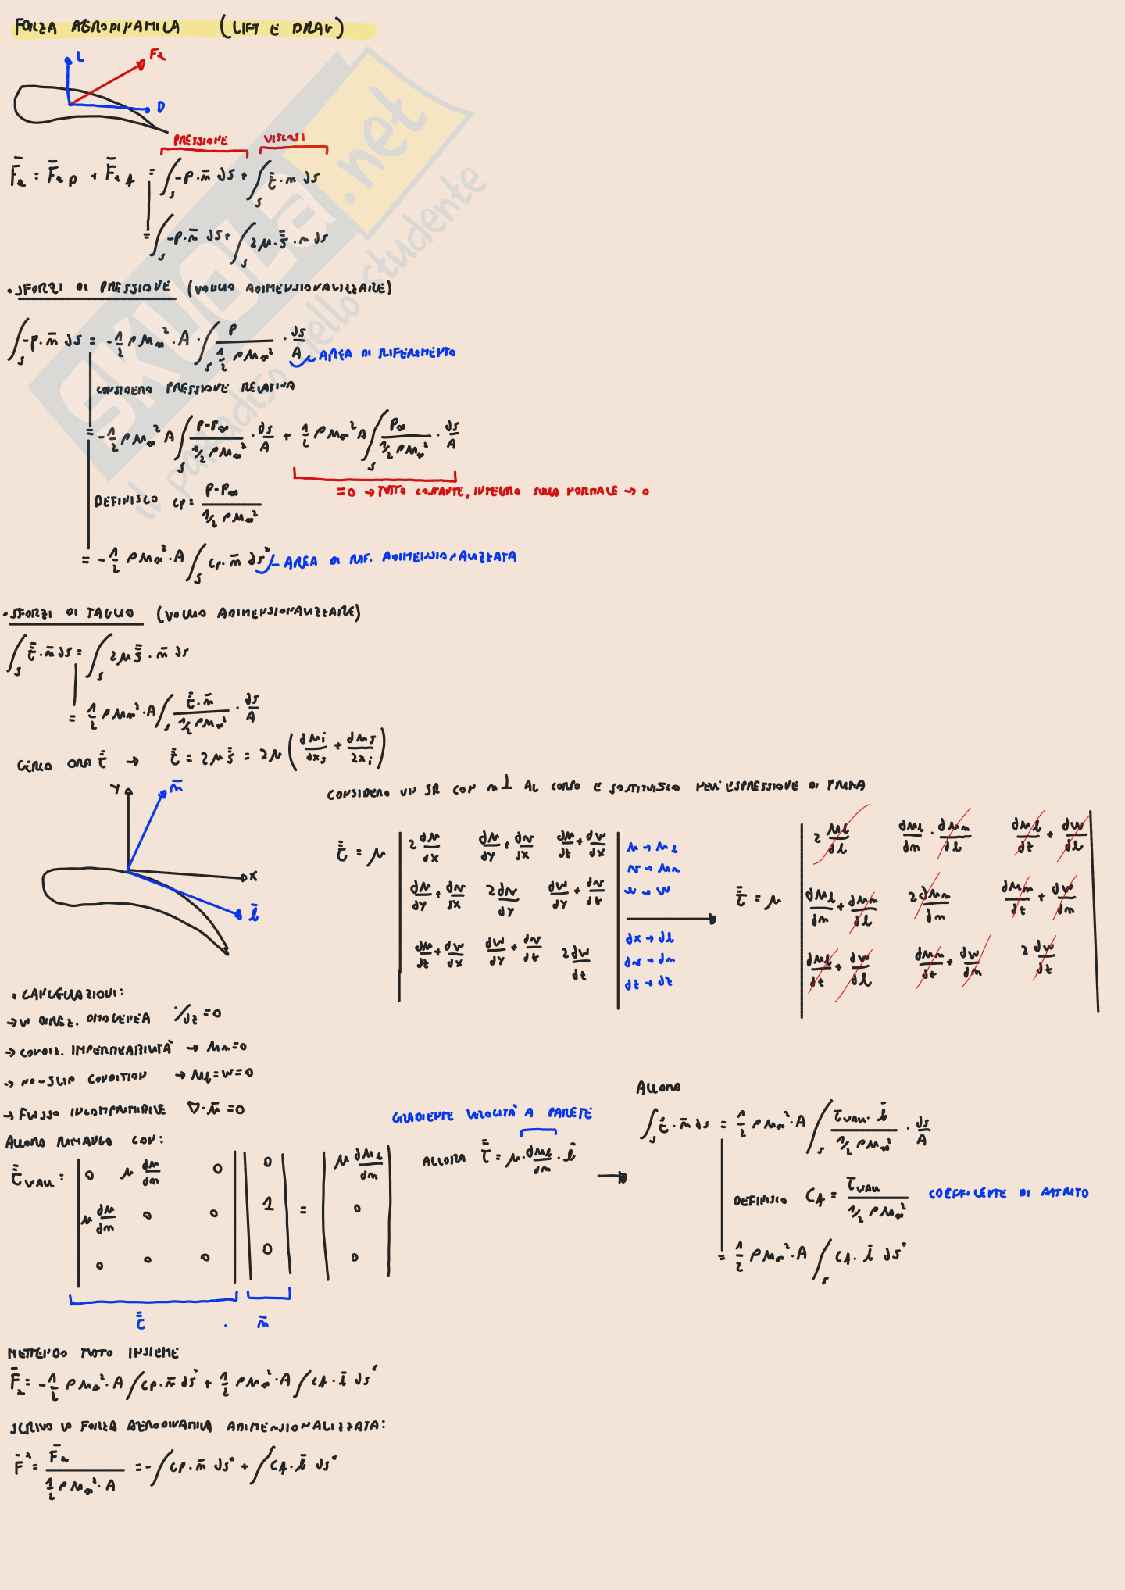 FORZA AERODINAMICA (LIFT E DRAG)
L
Fa
D
PRESSIONE VISCOSI
F̄a = F̄a,p + F̄a,f = ∫s -p·n̄ ds + ∫s τ̿·n ds
= ∫s -p·n̄ ds + ∫s 2μ·s̿·n ds
SKUOLA.net
il paradiso dello studente
• SFORZI DI PRESSIONE (VOGLIO ADIMENSIONALIZZARE)
∫s -p·n̄ ds = -1/2 ρ u∞²·A·∫s p/(1/2 ρ u∞²)·ds/A
AREA DI RIFERIMENTO
CONSIDERO PRESSIONE RELATIVA
= -1/2 ρ u∞² A ∫s (p-p∞)/(1/2 ρ u∞²)·ds/A + 1/2 ρ u∞² A ∫s p∞/(1/2 ρ u∞²)·ds/A
=0 → TUTTO COSTANTE, INTEGRO SULLA NORMALE → 0
DEFINISCO cp = (p-p∞)/(1/2 ρ u∞²)
= -1/2 ρ u∞²·A ∫s cp·n̄ ds* AREA DI RIF. ADIMENSIONALIZZATA
• SFORZI DI TAGLIO (VOGLIO ADIMENSIONALIZZARE)
∫s τ̿·n̄ ds = ∫s 2μ s̿·n̄ ds
= 1/2 ρ u∞²·A ∫s τ̿·n̄/(1/2 ρ u∞²)·ds/A
CERCO ORA τ̿ → τ̿ = 2μ s̿ = 2μ (dui/dxj + duj/2xi)
Y
n̄
X
l̄
CONSIDERO UN SR CON n⊥ AL CORPO E SOSTITUISCO NELL'ESPRESSIONE DI PRIMA
τ̿ = μ | 2 du/dx du/dy + dv/dx du/dz + dw/dx |
du/dy + dv/dx 2dv/dy dw/dy + dv/dz
du/dz + dw/dx dw/dy + dv/dz 2dw/dz
u → ul
v → un
w → w
dx → dl
dv → dn
dz → dz
τ̿ = μ | 2 dul/dl dul/dn · dun/dl dul/dz + dw/dl |
dul/dn + dun/dl 2dun/dn dun/dz + dw/dn
dul/dz + dw/dl dun/dz + dw/dn 2 dw/dz
• CANCELLAZIONI:
→ IN DIREZ. OMOGENEA ·/dz = 0
→ CONDIZ. IMPERMEABILITÀ → un = 0
→ NO-SLIP CONDITION → ul = w = 0
→ FLUSSO INCOMPRIMIBILE ∇·ū = 0
ALLORA RIMANGO CON:
τ̿wall = | 0 μ du/dn 0 | | 0 | = | μ dul/dn |
μ du/dn 0 0 1 0
0 0 0 0 0
τ̿ · n̄
GRADIENTE VELOCITÀ A PARETE
ALLORA τ̿ = μ·dul/dn·l̄ →
ALLORA
∫s τ̿·n̄ ds = 1/2 ρ u∞²·A ∫s τwall·l̄/(1/2 ρ u∞²)·ds/A
DEFINISCO Cf = τwall/(1/2 ρ u∞²) COEFFICIENTE DI ATTRITO
= 1/2 ρ u∞²·A ∫s Cf·l̄ ds*
METTENDO TUTTO INSIEME
F̄a = -1/2 ρ u∞²·A ∫ cp·n̄ ds* + 1/2 ρ u∞²·A ∫ Cf·l̄ ds*
SCRIVO LA FORZA AERODINAMICA ADIMENSIONALIZZATA:
F̄* = F̄a/(1/2 ρ u∞²·A) = -∫ cp·n̄ ds* + ∫ Cf·l̄ ds*